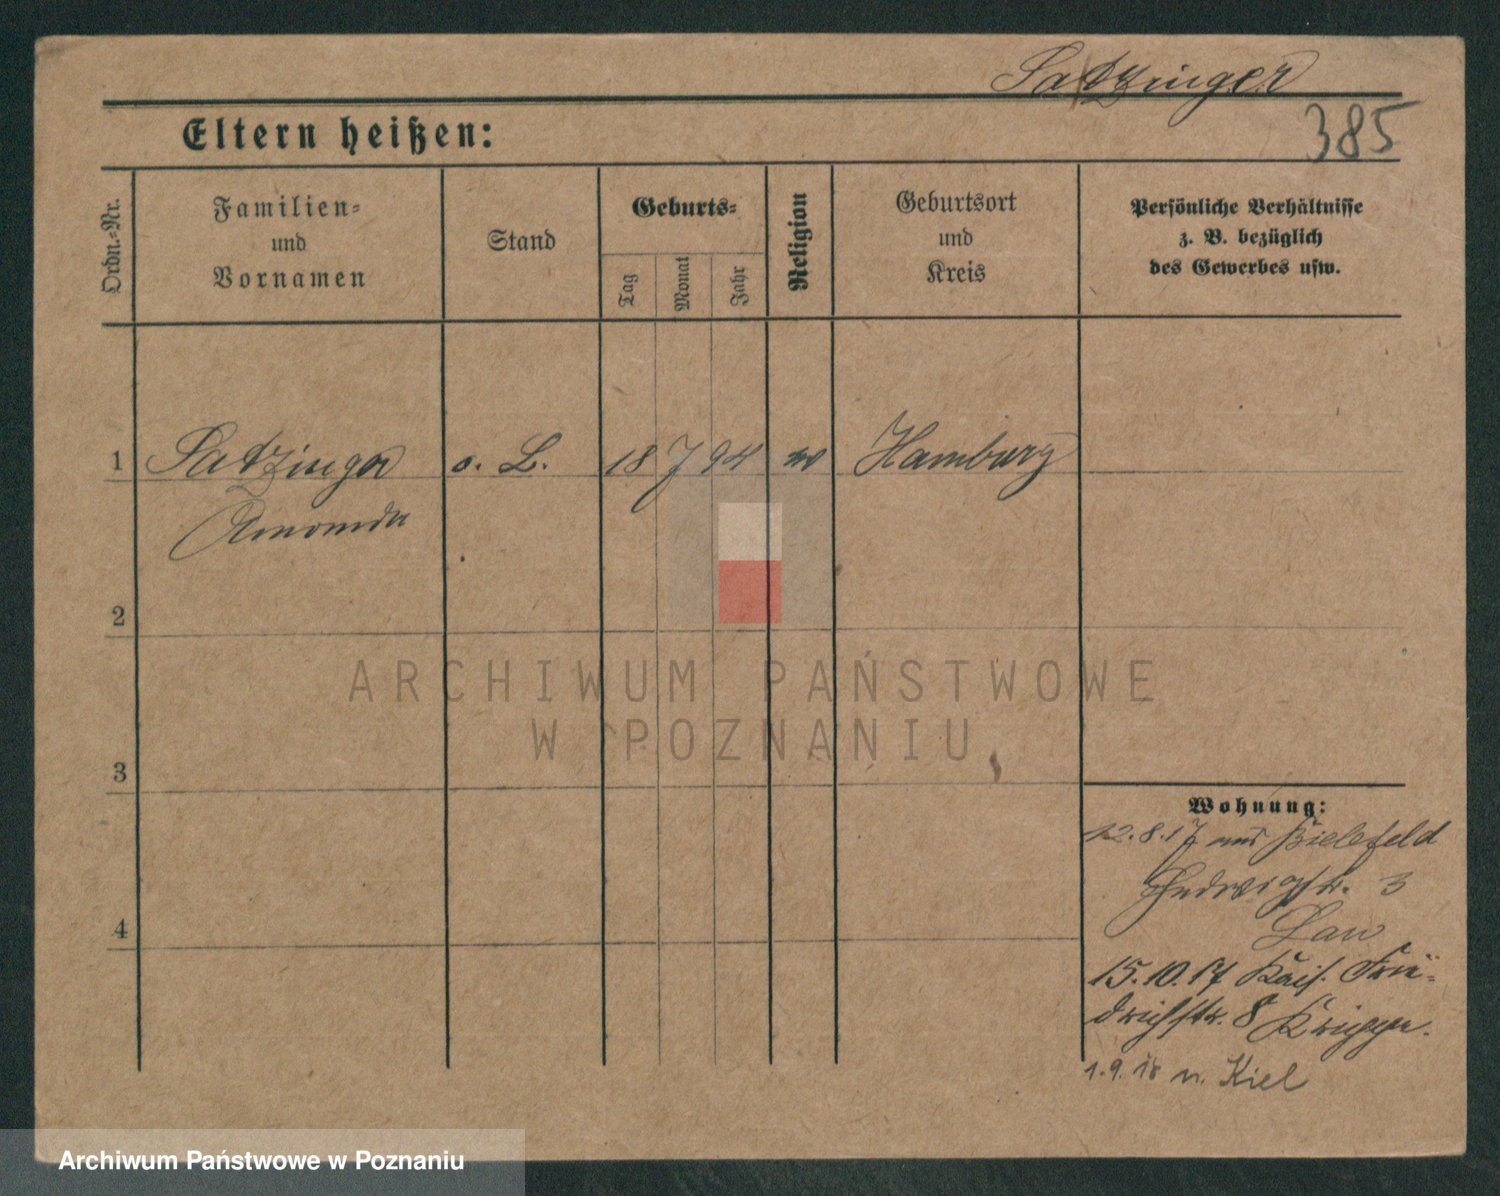 Satzinger
385
Eltern heißen:
Ordn.-Nr.
Familien-
und
Vornamen
Stand
Geburts-
Tag
Monat
Jahr
Religion
Geburtsort
und
Kreis
Persönliche Verhältnisse
z. B. bezüglich
des Gewerbes usw.
1 Satzinger o. L. 18 7 94 Hamburg
Amanda
2
3
4
ARCHIWUM PAŃSTWOWE
W POZNANIU
Wohnung:
12.8.17 aus Bielefeld
Hedwigstr. 3
Lau
15.10.17 Kais. Frie-
drichstr. 8
1.9.18 n. Kiel
Archiwum Państwowe w Poznaniu